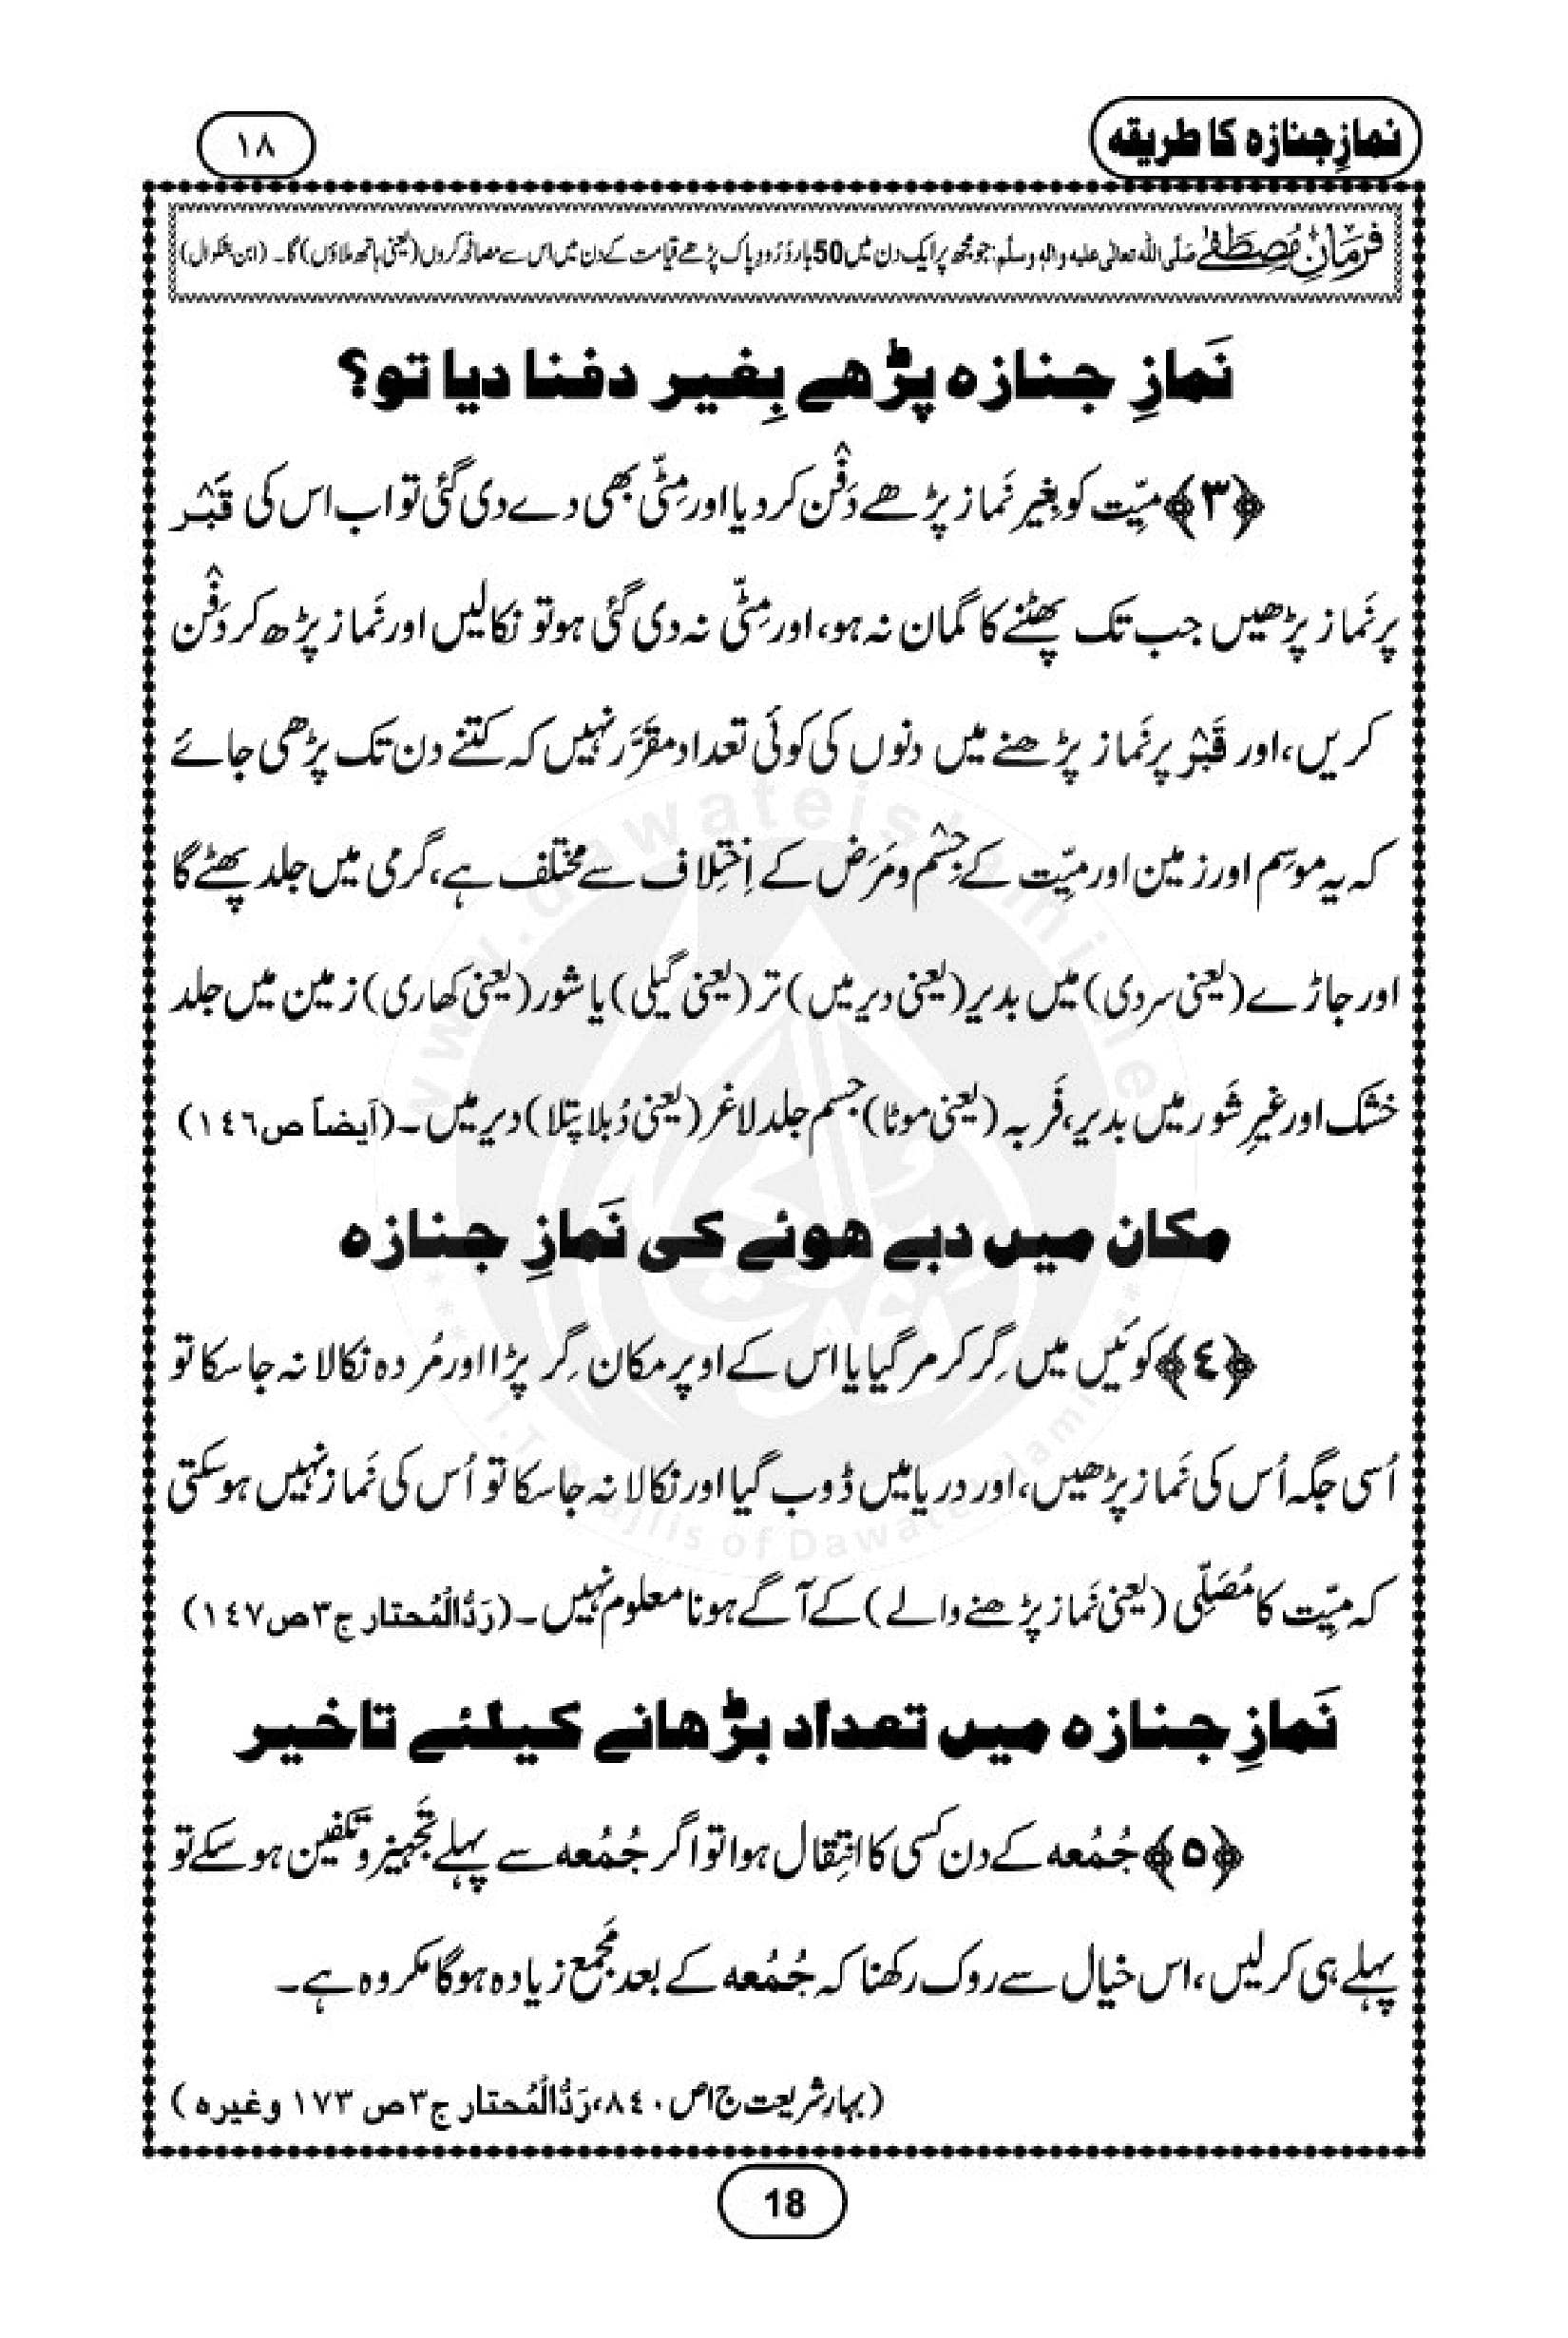 نمازِ جنازہ کا طریقہ
١٨
فرمانِ مُصطَفٰے صَلَّی اللہ تعالٰی علیہ واٰلہٖ وسلَّم: جو مجھ پر ایک دن میں 50 بار دُرُودِ پاک پڑھے قیامت کے دن میں اس سے مصافحہ کروں (یعنی ہاتھ ملاؤں) گا۔ (ابن بشکوال)
نَمازِ جنازہ پڑھے بِغیر دفنا دیا تو؟
﴿٣﴾ میِّت کو بِغیر نَماز پڑھے دَفْن کر دیا اور مِٹّی بھی دے دی گئی تو اب اس کی قَبْر
پر نَماز پڑھیں جب تک پھٹنے کا گمان نہ ہو، اور مِٹّی نہ دی گئی ہو تو نکالیں اور نَماز پڑھ کر دَفْن
کریں، اور قَبْر پر نَماز پڑھنے میں دنوں کی کوئی تعداد مقرَّر نہیں کہ کتنے دن تک پڑھی جائے
کہ یہ موسِم اور زمین اور میِّت کے جِسْم و مَرَض کے اِختِلاف سے مختلف ہے، گرمی میں جلد پھٹے گا
اور جاڑے (یعنی سردی) میں بدیر (یعنی دیر میں) تر (یعنی گیلی) یا شور (یعنی کھاری) زمین میں جلد
خشک اور غیرِ شَور میں بدیر، فَربہ (یعنی موٹا) جسم جلد لاغر (یعنی دُبلا پتلا) دیر میں۔ (اَیضاً ص١٤٦)
مکان میں دبے ہوئے کی نَمازِ جنازہ
﴿٤﴾ کوئیں میں گِر کر مر گیا یا اس کے اوپر مکان گِر پڑا اور مُردہ نکالا نہ جا سکا تو
اُسی جگہ اُس کی نَماز پڑھیں، اور دریا میں ڈوب گیا اور نکالا نہ جا سکا تو اُس کی نَماز نہیں ہو سکتی
کہ میِّت کا مُصَلّی (یعنی نَماز پڑھنے والے) کے آگے ہونا معلوم نہیں۔ (رَدُّالْمُحتار ج٣ص١٤٧)
نَمازِ جنازہ میں تعداد بڑھانے کیلئے تاخیر
﴿٥﴾ جُمُعہ کے دن کسی کا انتِقال ہوا تو اگر جُمُعہ سے پہلے تَجہیز و تکفین ہو سکے تو
پہلے ہی کر لیں، اس خیال سے روک رکھنا کہ جُمُعہ کے بعد مَجمع زیادہ ہوگا مکروہ ہے۔
(بہارِ شریعت ج١ص٨٤٠، رَدُّالْمُحتار ج٣ص ١٧٣ وغیرہ)
18